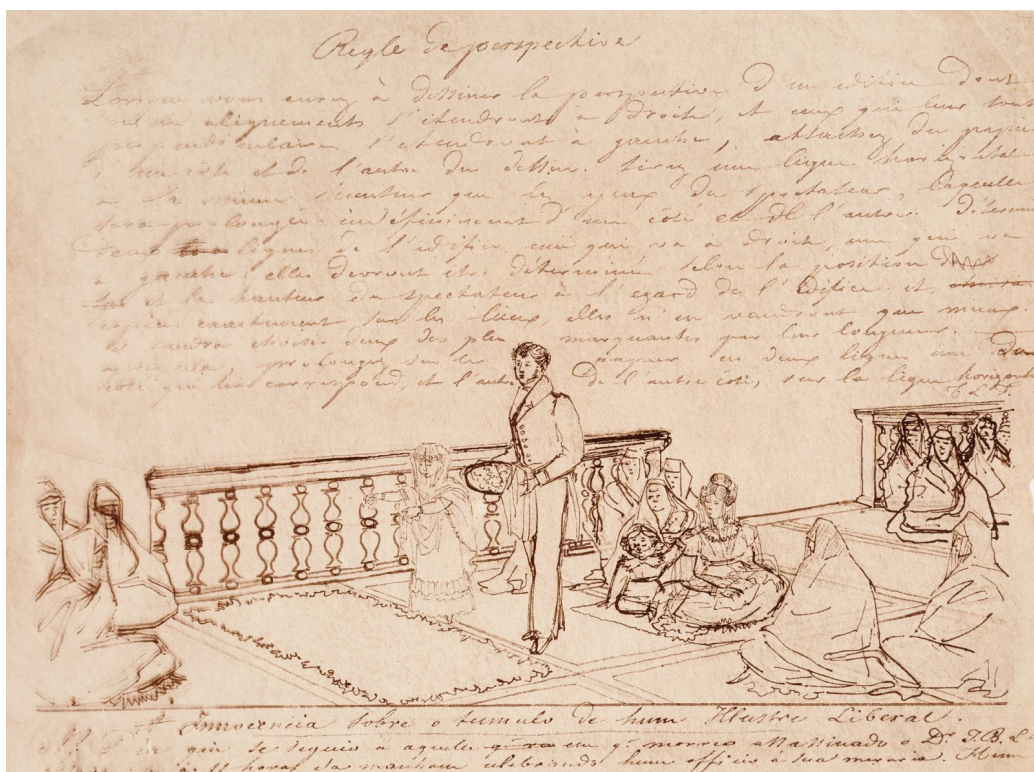 Regle de perspective
Lorsque vous aurez à dessiner la perspective d'un edifice dont
alignements s'etendront à droite, et ceux qui leur sont
perpendiculaires s'etendront à gauche, attachez du papier
d'un coté et de l'autre du dessin. tirez une ligne horizontale
à la même hauteur que les yeux du spectateur, laquelle
sera prolongée indéfiniment d'un coté et de l'autre.
deux lignes de l'édifice une qui va à droite, une qui va
à gauche: elles devront être déterminé selon la position
et la hauteur du spectateur à l'egard de l'edifice. et,
copiées exactement sur les lieux, elles n'en vaudront que mieux
choisir deux des plus marquantes par leur longueur.
prolongez sur les deux lignes une
coté qui leur correspond, et l'autre de l'autre coté, sur la ligne horizont
A Innocencia sobre o tumulo de hum Illustre Liberal.
que se seguio à aquelle em q. morreo assassinado o Dr J.B. L
horas da manham celebrando hum officio a sua memoria. Hum